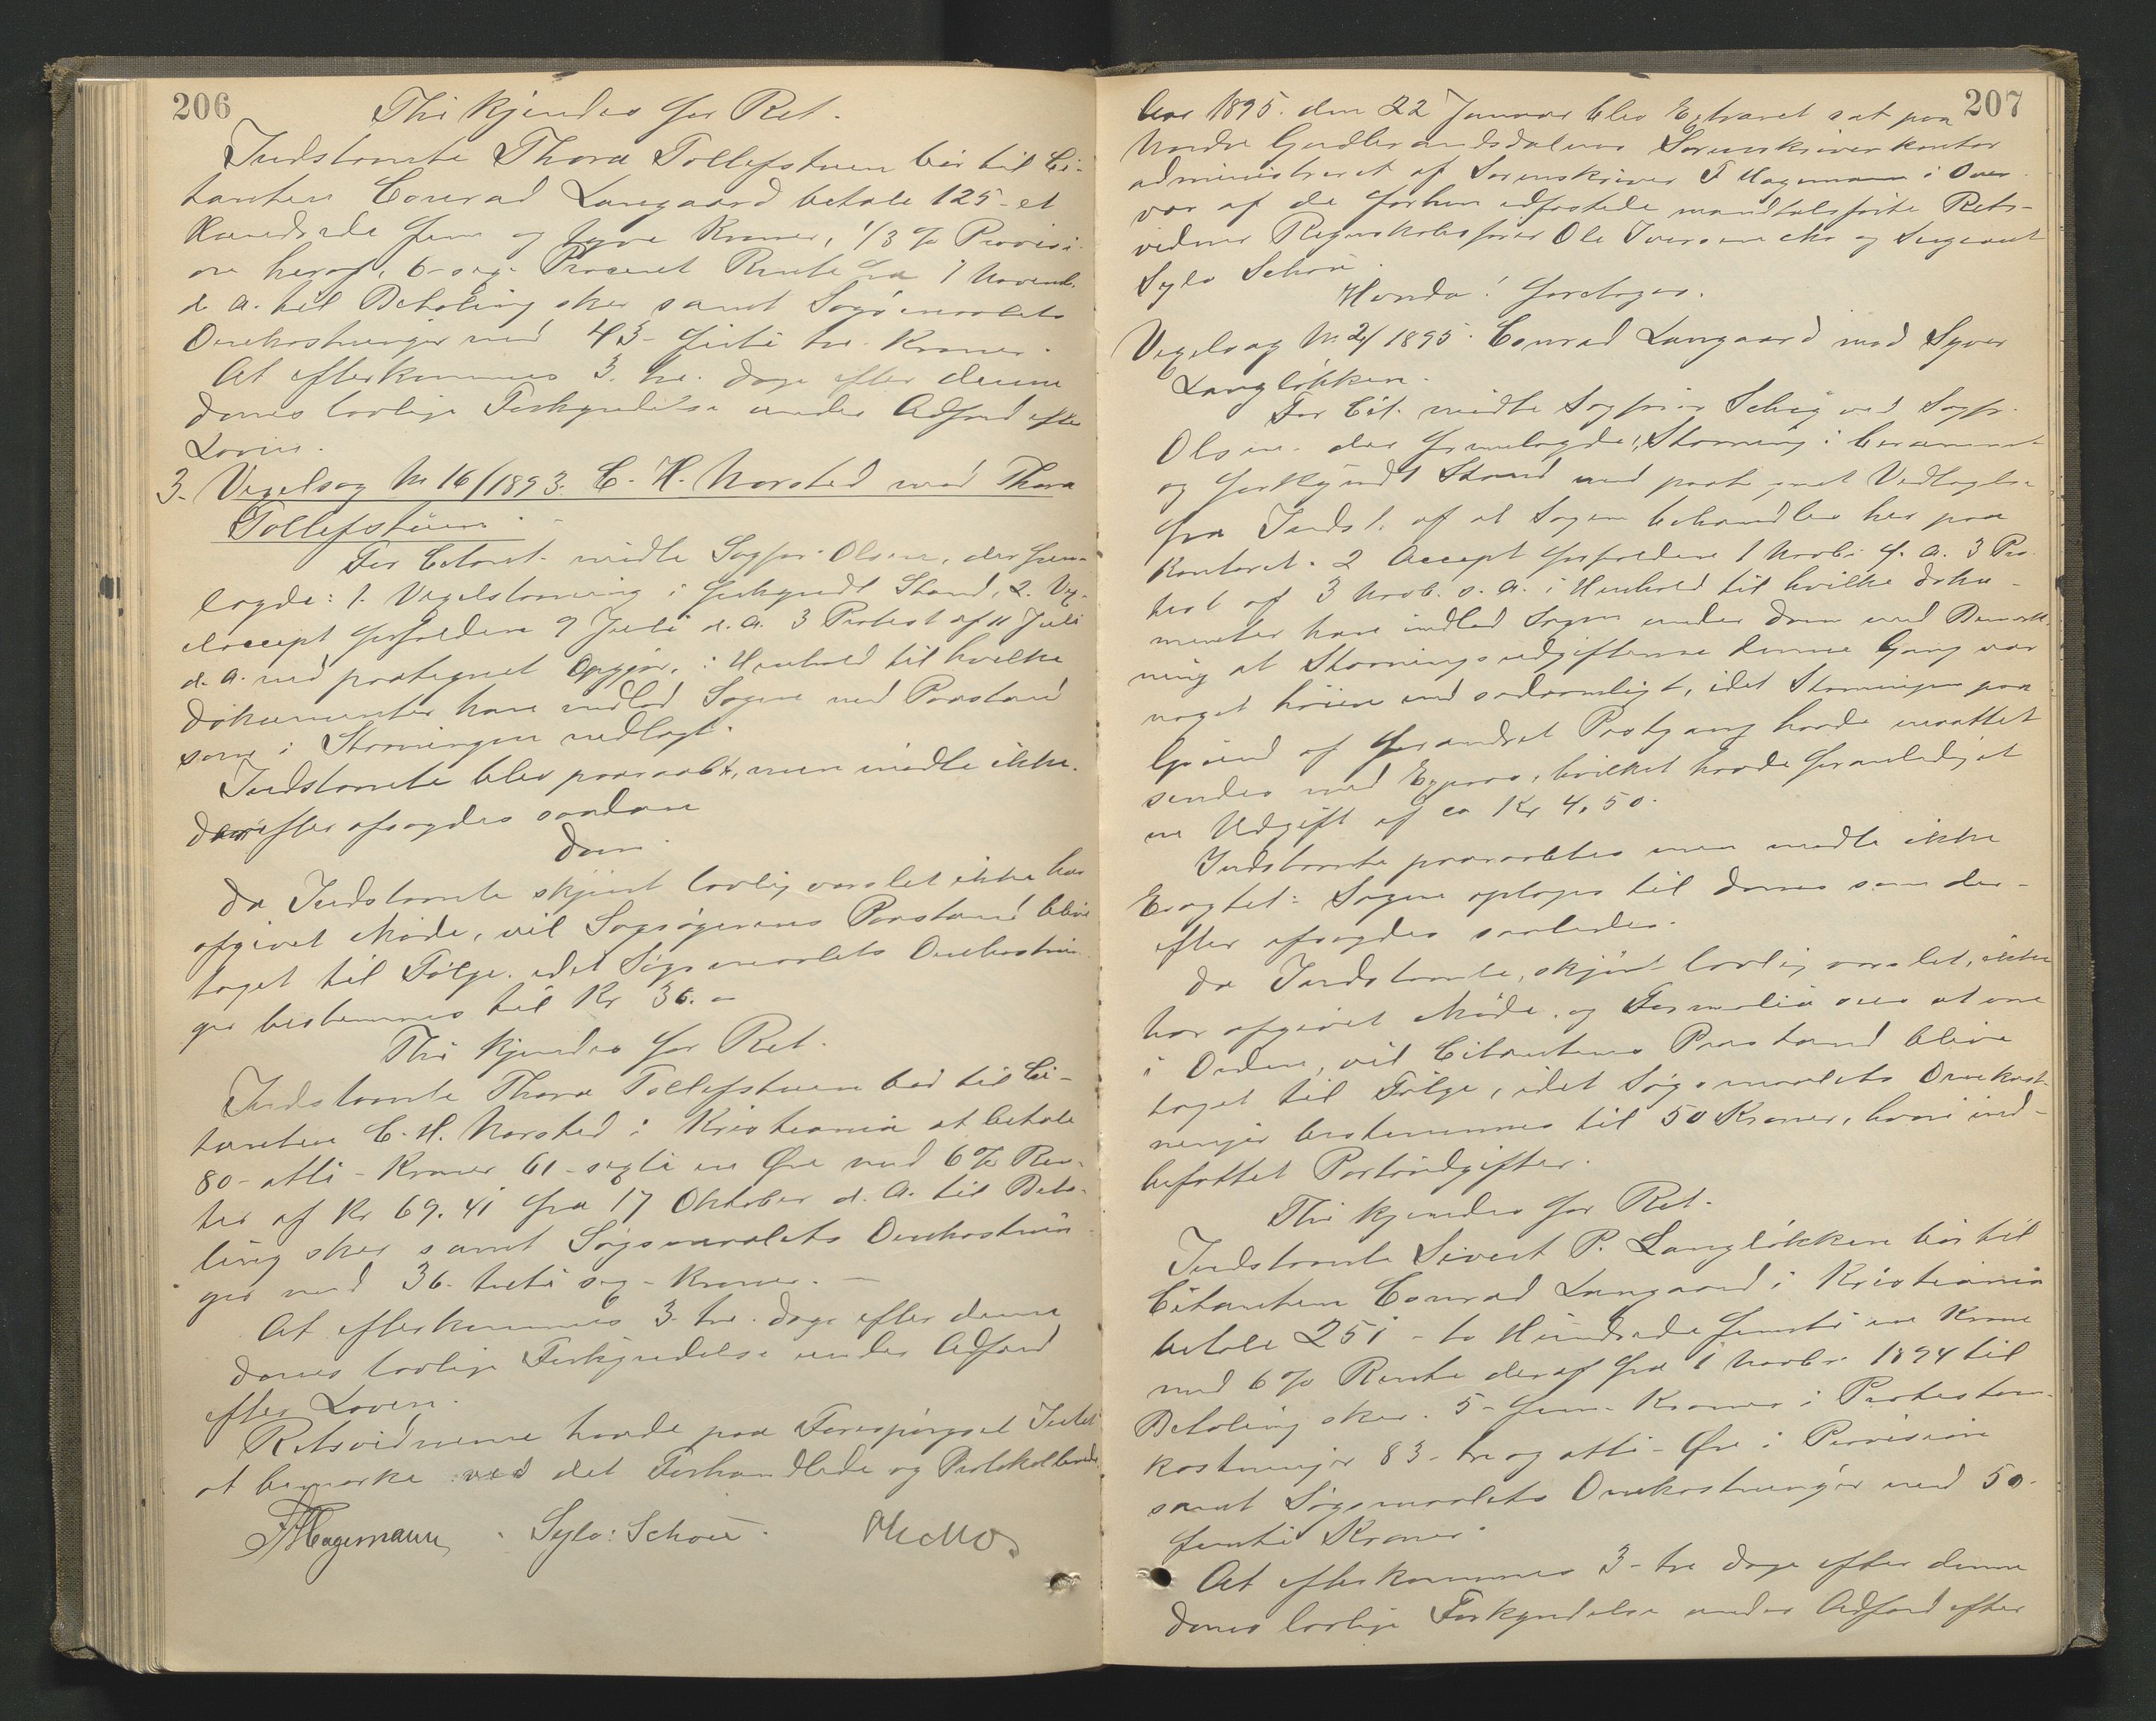 206
Thi kjendes for Ret.
Indstævnte Thora Tollefstuen bør til Ci-
tanten Conrad Langaard betale 125 - et
Hundrede fem og tyve Kroner, 1/3 % Provisi-
on heraf, 6 - sex Procent Rente fra 1 Novemb.
d. A. til Betaling sker samt Søgsmaalets
Omkostninger med 43 - firti tre Kroner.
At efterkommes 3. tre Dage efter denne
Doms lovlige Forkyndelse under Adfærd efter
Loven.
3. Vexelsag No 16/1893. C. H. Norsted mod Thora
Tollefstuen.
For Citant. mødte Sagfør. Olsen, der frem-
lagde: 1. Vexelstævning i forkyndt Stand, 2. Vex-
elaccept forfalden 9 Juli d. A. 3 Protest af 11 Juli
d. A. med paategnet Opgjør, i Henhold til hvilke
Dokumenter han indlod Sagen med Paastand
som i Stævningen nedlagt.
Indstævnte blev paaraabt, men mødte ikke.
Derefter afsagdes saadan
Dom.
Da Indstævnte skjønt lovlig varslet ikke har
afgivet Møde, vil Sagsøgerens Paastand blive
taget til Følge, idet Søgsmaalets Omkostnin-
ger bestemmes til Kr 36. -
Thi kjendes for Ret.
Indstævnte Thora Tollefstuen bør til Ci-
tanten C. H. Norsted i Kristiania at betale
80 - otti - Kroner 61 - sexti en Øre med 6 % Ren-
ter af Kr 69.41 fra 17 Oktober d. A. til Beta-
ling sker samt Søgsmaalets Omkostnin-
ger med 36. treti sex - Kroner. -
At efterkommes 3. tre Dage efter denne
Doms lovlige Forkyndelse under Adfærd
efter Loven.
Retsvidnerne havde paa Forespørgsel Intet
at bemærke ved det Forhandlede og Protokollerede.
F Hagemann. Sylv: Schou.
207
Aar 1895. den 22 Januar blev Extraret sat paa
Nordre Gudbrandsdalens Sorenskriverkontor
administreret af Sorenskriver F Hagemann i Over-
vær af de forhen edfæstede mandtalsførte Rets-
vidner Regnskabsfører Ole Iversen Mo og Sergeant
Sylv Schou.
Hvorda! foretoges.
Vexelsag No 2/1895. Conrad Langaard mod Syver
Langløkken.
For Cit. mødte Sagfører Schøy ved Sagfr.
Olsen. der fremlagde 1, Stævning i berammet
og forkyndt Stand med paategnet Vedtagelse
fra Indst. af at Sagen behandles her paa
Kontoret. 2 Accept forfalden 1 Novbr f. A. 3 Pro-
test af 3 Novb. s. A. i Henhold til hvilke Doku-
menter han indlod Sagen under Dom med Bemærk-
ning at Stævningsudgifterne denne Gang var
noget høiere end sedvanligt, idet Stævningen paa
Grund af forandret Postgang havde maattet
sendes med Expres, hvilket havde foranlediget
en Udgift af ca Kr 4,50.
Indstævnte paaraabtes men mødte ikke
Eragtet: Sagen optages til Doms som der-
efter afsagdes saaledes.
Da Indstævnte, skjønt lovlig varslet, ikke
har afgivet Møde, og Formalia sees at være
i Orden, vil Citantens Paastand blive
taget til Følge, idet Søgsmaalets Omkost-
ninger bestemmes til 50 Kroner, heri ind-
befattet Portoudgifter.
Thi kjendes for Ret.
Indstævnte Sivert P. Langløkken bør til
Citanten Conrad Langaard i Kristiania
betale 251 - to Hundrede femti en Krone
med 6 % Rente deraf fra 1 Novbr. 1894 til
Betaling sker. 5 - fem - Kroner i Protestom-
kostninger 83 - tre og otti - Øre i Provision
samt Søgsmaalets Omkostninger med 50 -
femti Kroner.
At efterkommes 3 - tre Dage efter denne
Doms lovlige Forkyndelse under Adfærd efter